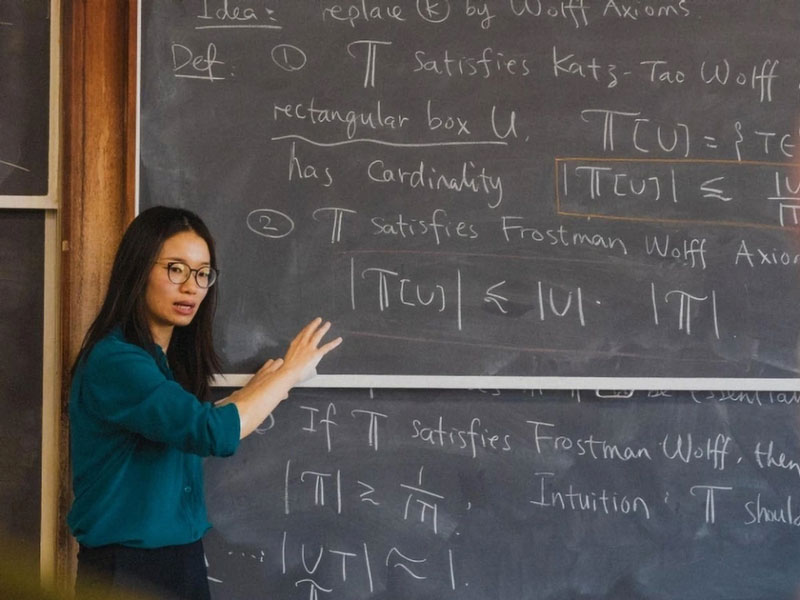 Idea: replace Ⓚ by Wolff Axioms.
Def: ① 𝕋 satisfies Katz-Tao Wolff
rectangular box U, 𝕋[U] = { T∈
has Cardinality |𝕋[U]| ≲ |U|/|T|
② 𝕋 satisfies Frostman Wolff Axiom
|𝕋[U]| ≲ |U| · |𝕋|
be Essential
If 𝕋 satisfies Frostman Wolff, then
|𝕋| ≳ 1/|T|, Intuition: 𝕋 should
.... |∪_𝕋 T| ≈ 1.